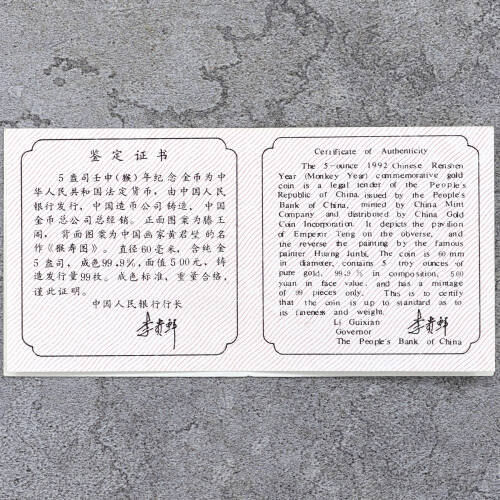 鉴定证书
5盎司壬申(猴)年纪念金币为中
华人民共和国法定货币，由中国人民
银行发行，中国造币公司铸造，中国
金币总公司总经销。正面图案为滕王
阁，背面图案为中国画家黄君璧的名
作《猴寿图》。直径60毫米，含纯金
5盎司，成色99.9%，面值500元，铸
造发行量99枚。成色标准，重量合格，
谨此证明。
中国人民银行行长
李贵鲜
Certificate of Authenticity
The 5-ounce 1992 Chinese Renshen
Year (Monkey Year) commemorative gold
coin is a legal tender of the People's
Republic of China, issued by the People's
Bank of China, minted by China Mint
Company and distributed by China Gold
Coin Incorporation. It depicts the pavilion
of Emperor Teng on the obverse, and
the reverse the painting by the famous
painter Huang Junbi. The coin is 60 mm
in diameter, contains 5 troy ounces of
pure gold, 99.9 % in composition, 500
yuan in face value, and has a mintage
of 99 pieces only. This is to certify
that the coin is up to standard as to
its fineness and weight.
Li Guixian 李贵鲜
Governor
The People's Bank of China